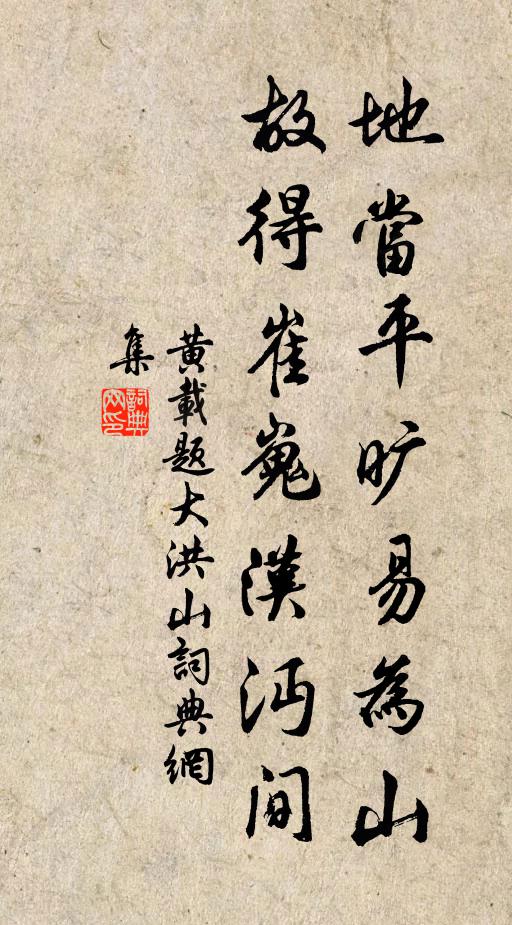 地當平旷易為山
故得崔嵬漢沔间
黄載题大洪山詞典網
集
詞典
网印